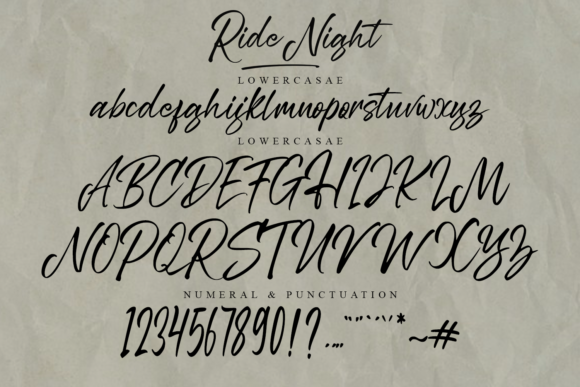 Ride Night
LOWERCASAE
abcdefghijklmnopqrstuvwxyz
LOWERCASAE
ABCDEFGHIJKLM
NOPQRSTUVWXYZ
NUMERAL & PUNCTUATION
1234567890!?.,,"“”‘’'*~#